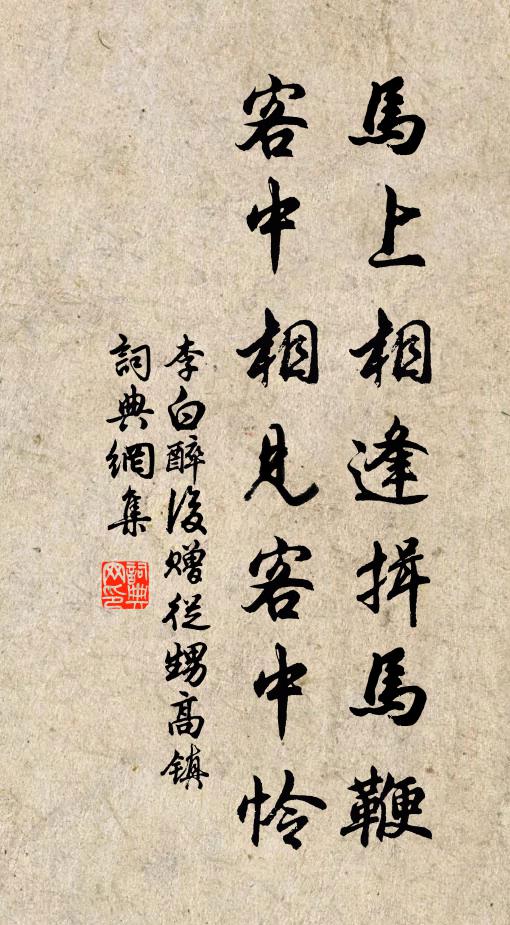 馬上相逢揖馬鞭
客中相見客中怜
李白醉後贈從甥高鎮
詞典網集
詞典网印